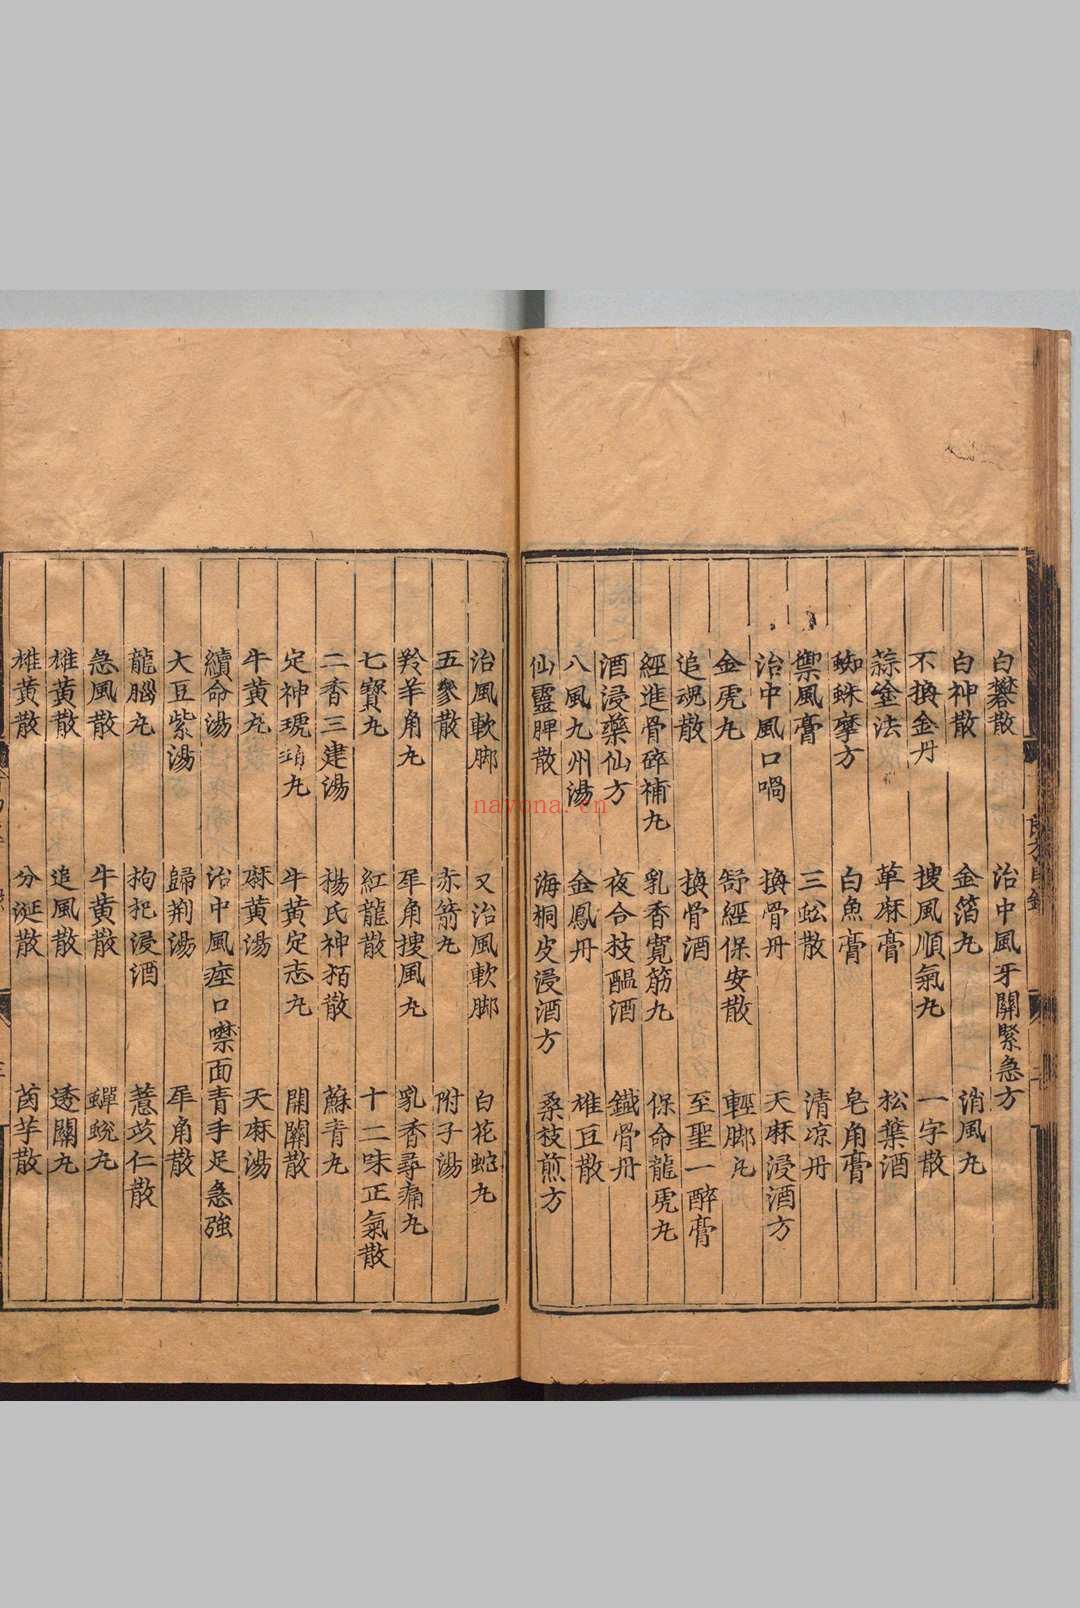 白礬散 治中風牙關緊急方
白神散 金箔丸 消風丸
不換金丹 搜風順氣丸 一字散
蒜金法 草麻膏 松葉酒
蜘蛛摩方 白魚膏 皂角膏
禦風膏 三蚣散 清凉丹
治中風口喎 換骨丹 天麻浸酒方
金虎丸 舒經保安散 輕脚丸
追魂散 換骨酒 至聖一醉膏
經進骨碎補丸 乳香寬筋丸 保命龍虎丸
酒浸藥仙方 夜合枝醖酒 鐵骨丹
八風九州湯 金鳳丹 雄豆散
仙靈脾散 海桐皮浸酒方 桑枝煎方
治風軟脚 又治風軟脚 白花蛇丸
五參散 赤箭丸 附子湯
羚羊角丸 犀角搜風丸 乳香尋痛丸
七寶丸 紅龍散 十二味正氣散
二香三建湯 楊氏神栢散 蘇青丸
定神琥珀丸 牛黃定志丸 開關散
牛黃丸 麻黃湯 天麻湯
續命湯 治中風瘂口噤面青手足急強
大豆紫湯 歸荆湯 犀角散
龍腦丸 枸杞浸酒 薏苡仁散
急風散 牛黃散 蟬蛻丸
雄黃散 追風散 透關丸
雄黃散 分涎散 茵芋散
nayona.cn